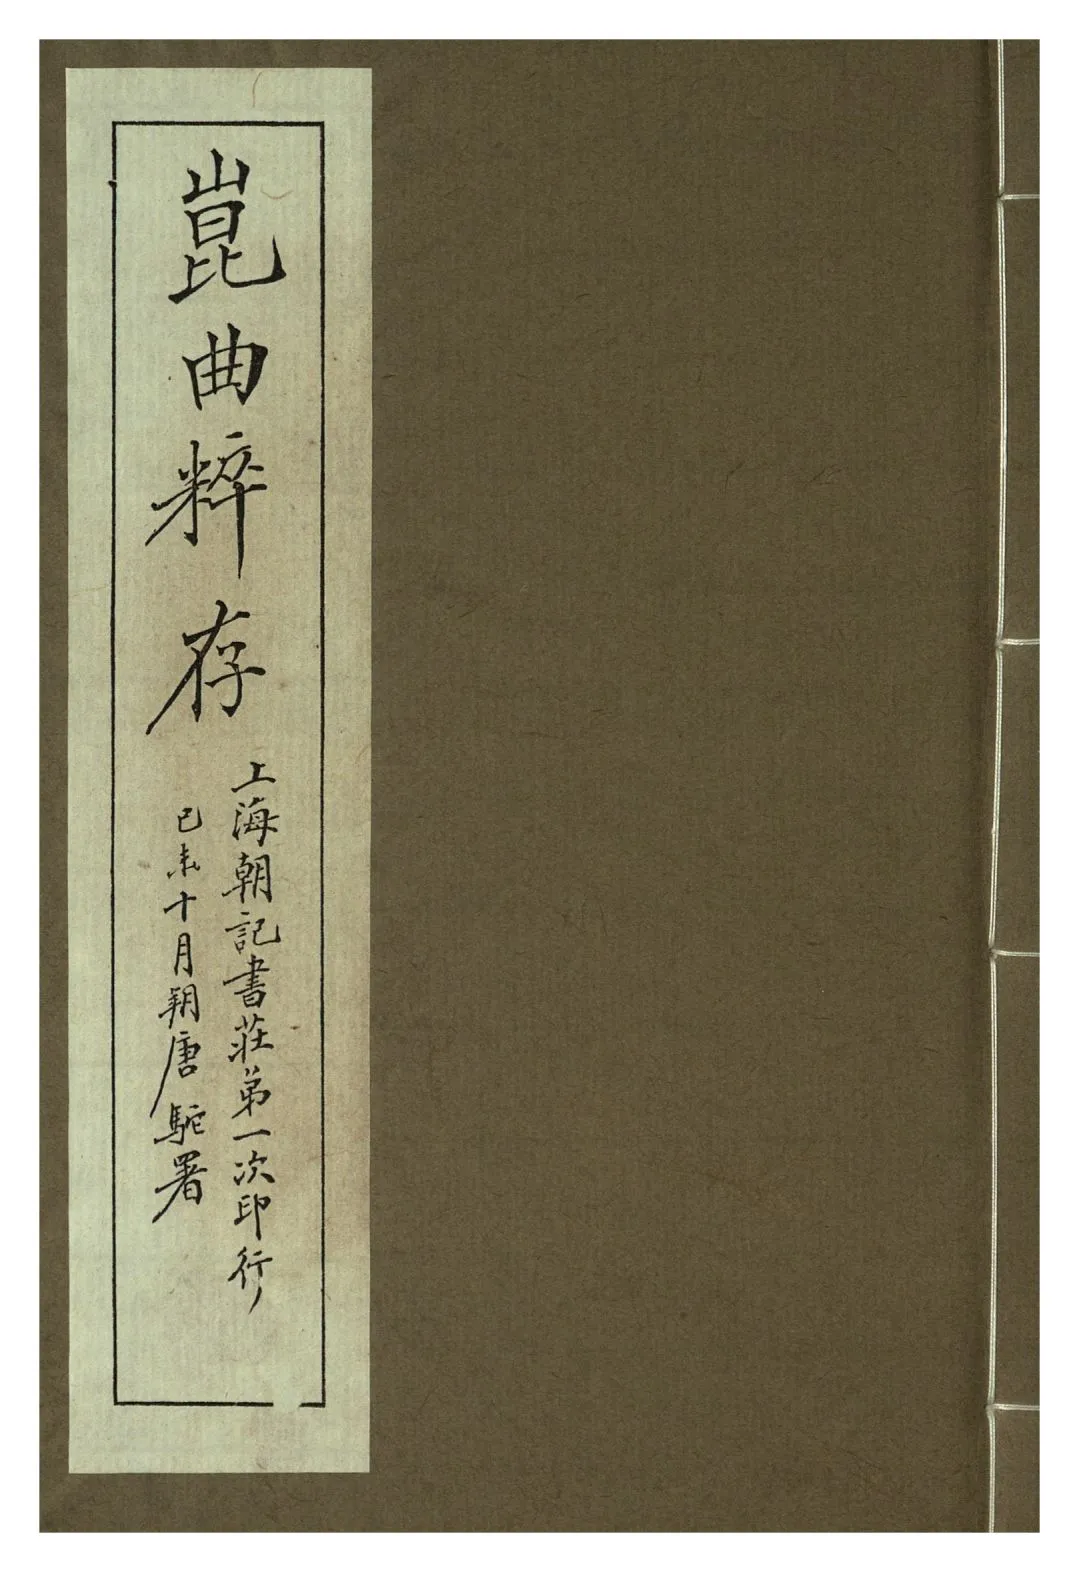 崑曲粹存
上海朝記書莊弟一次印行
己未十月朔唐駝署